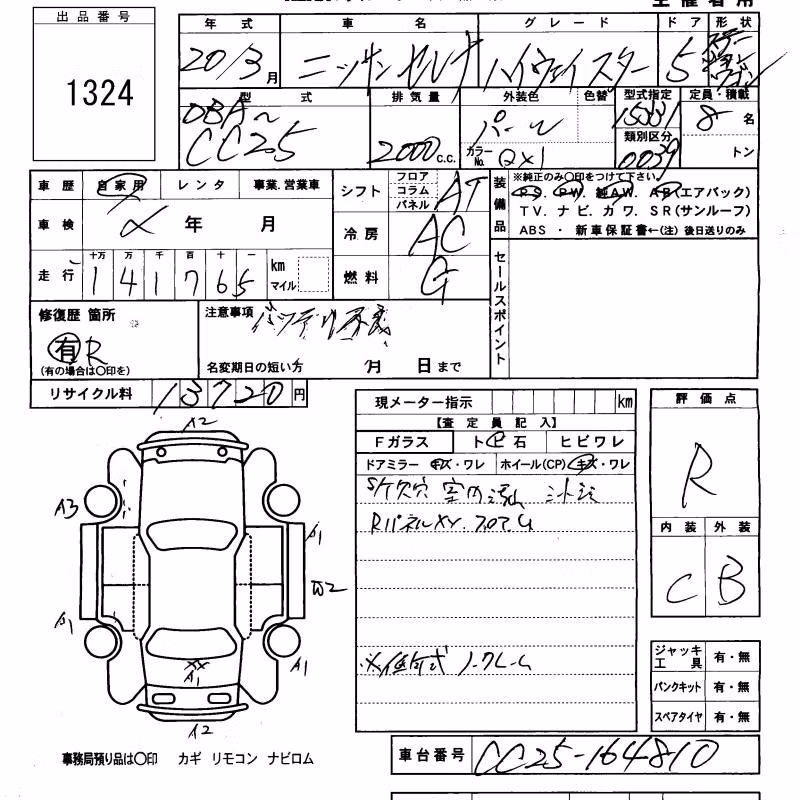 出品番号
1324
年式 車名 グレード ドア 形状
20/3月 ニッサン セレナ ハイウェイスター 5 ステーションワゴン
型式 排気量 外装色 色替 型式指定 定員・積載
DBA~ CC25 2000c.c. パール 15331 8名
カラーNo. QX1 類別区分 0039 トン
車歴 自家用 レンタ 事業.営業車
車検 〆 年 月
走行 十万 万 千 百 十 一 km マイル
141765
シフト フロア コラム パネル AT
冷房 AC
燃料 G
装備品
※純正のみ〇印をつけて下さい。
PS. PW. 純AW. AB(エアバック)
TV. ナビ. カワ. SR(サンルーフ)
ABS ・ 新車保証書←(注) 後日送りのみ
セールスポイント
修復歴 箇所
有 R
(有の場合は〇印を)
注意事項 バッテリ不良
名変期日の短い方 月 日まで
リサイクル料 13720円
現メーター指示 km
【査定員記入】
Fガラス ト ビ 石 ヒビワレ
ドアミラー キズ・ワレ ホイール(CP) キズ・ワレ
Rパネル XY.
ノークレーム
評価点
R
内装 外装
C B
ジャッキ工具 有・無
パンクキット 有・無
スペアタイヤ 有・無
A2
A3
A1
W2
A1
A1
XX
A1
A2
事務局預り品は〇印 カギ リモコン ナビロム
車台番号 CC25-164810